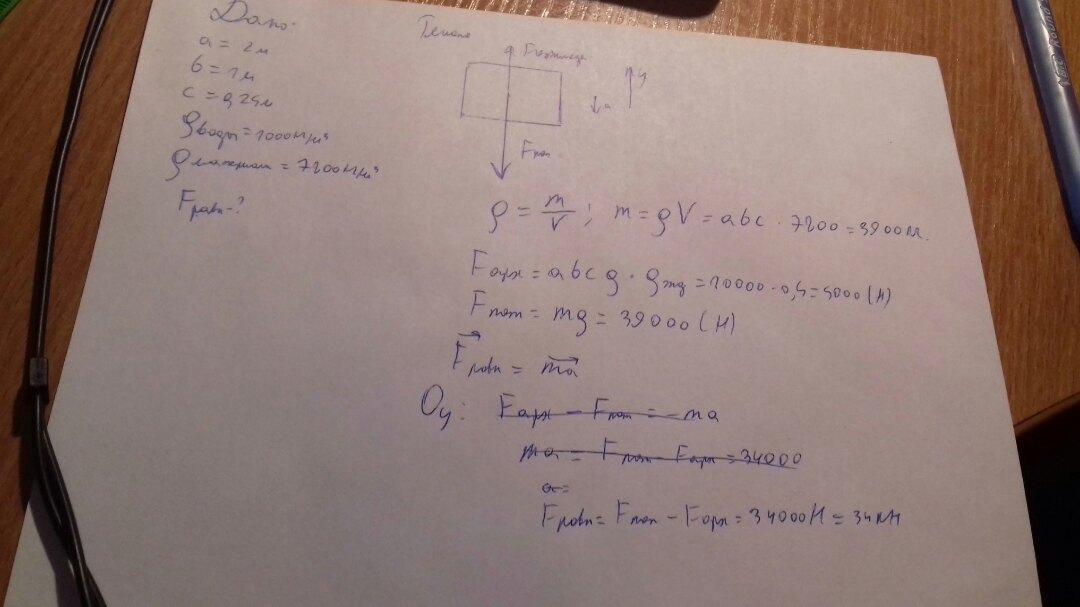 Дано:
a = 2м
b = 1м
c = 0,25м
ρводы = 1000кг/м³
ρматериал = 7800кг/м³
Fравн-?
Fархимеда
y
a
Fтяж
ρ = m/V ; m = ρV = abc · 7800 = 3900кг.
Fарх = abc g · ρжид = 10000 · 0,5 = 5000 (Н)
Fтяж = mg = 39000 (Н)
Fравн = ma
Oy: Fарх - Fтяж = - ma
ma = Fтяж - Fарх = 34000
a =
Fравн = Fтяж - Fарх = 34000Н = 34кН